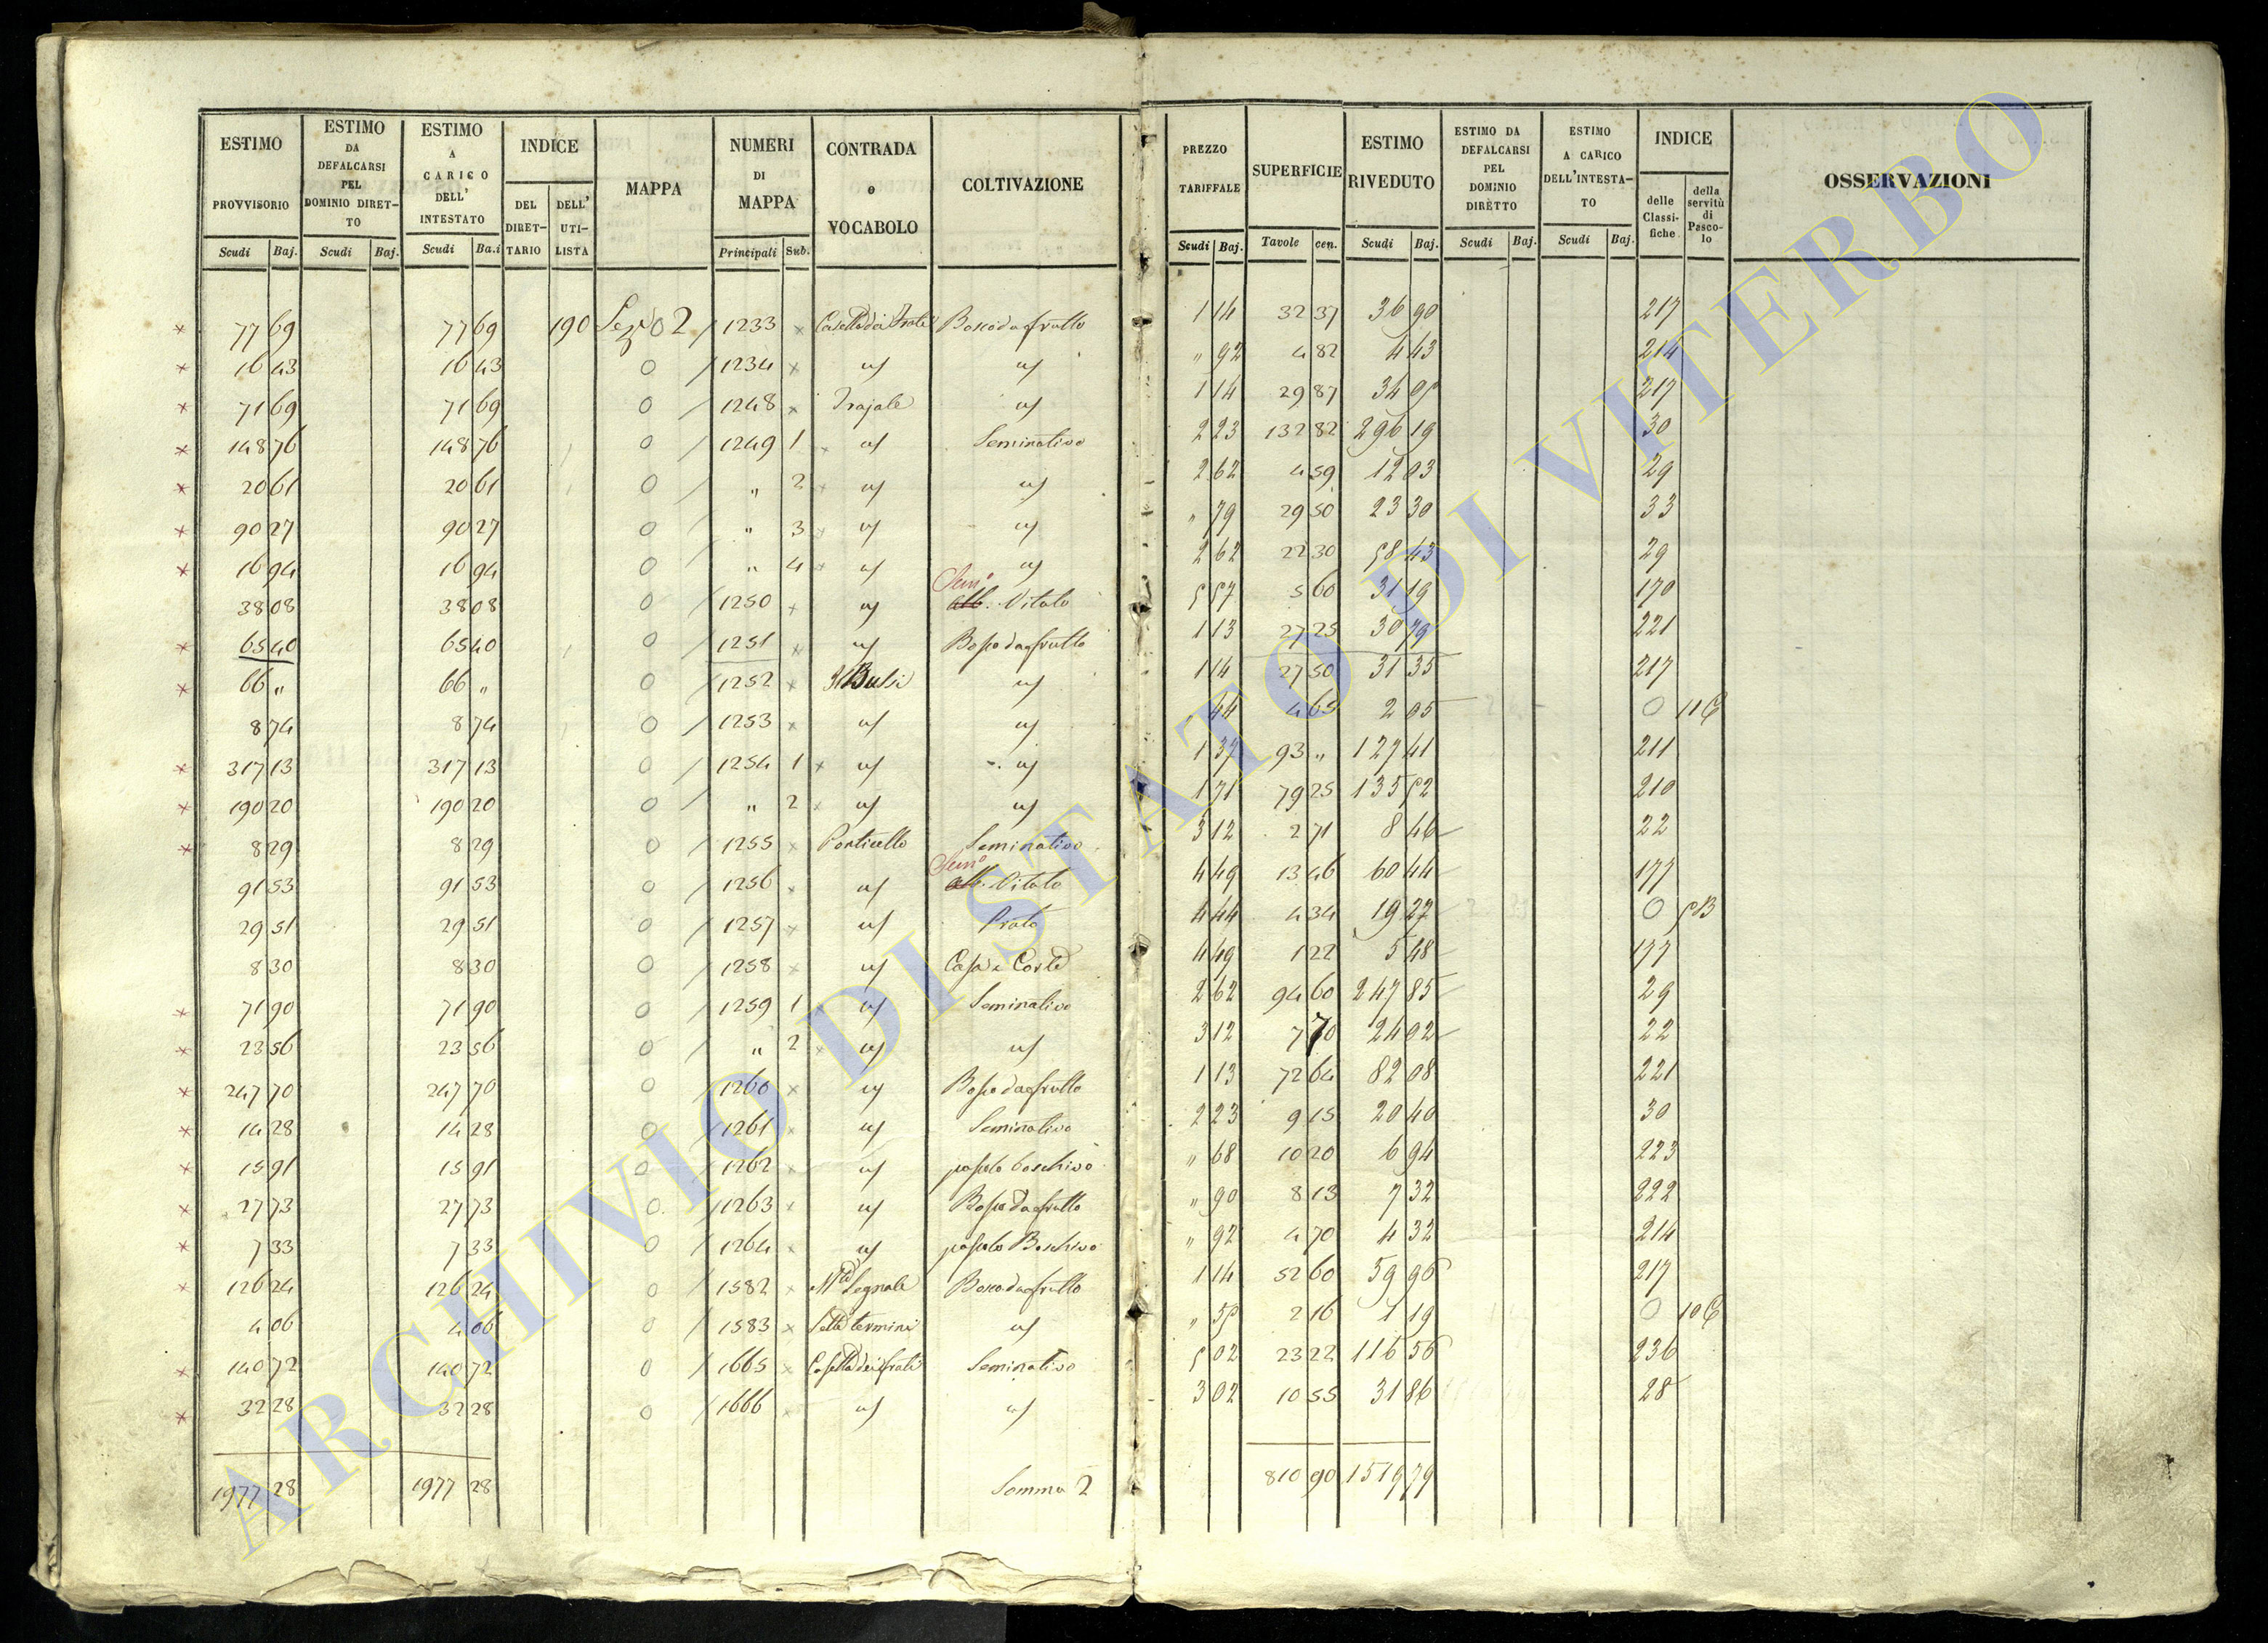 ESTIMO PROVVISORIO Scudi Baj. | ESTIMO DA DEFALCARSI PEL DOMINIO DIRETTO Scudi Baj. | ESTIMO A CARICO DELL' INTESTATO Scudi Ba.i | INDICE DEL DIRETTARIO DELL' UTILISTA | MAPPA | NUMERI DI MAPPA Principali Sub. | CONTRADA o VOCABOLO | COLTIVAZIONE | PREZZO TARIFFALE Scudi Baj. | SUPERFICIE Tavole cen. | ESTIMO RIVEDUTO Scudi Baj. | ESTIMO DA DEFALCARSI PEL DOMINIO DIRETTO Scudi Baj. | ESTIMO A CARICO DELL'INTESTATO Scudi Baj. | INDICE delle Classifiche della servitù di Pascolo | OSSERVAZIONI
77 69 77 69 190 2 1233 Bosco da frutto 1 14 32 37 36 90 217
16 43 16 43 0 1234 " 92 4 82 4 43 214
71 69 71 69 0 1248 Trajale 1 14 29 87 34 05 217
148 76 148 76 0 1249 1 Seminativo 2 23 132 82 296 19 30
20 61 20 61 0 " 2 2 62 4 59 12 03 29
90 27 90 27 0 " 3 " 79 29 50 23 30 33
16 94 16 94 0 " 4 2 62 22 30 58 43 29
38 08 38 08 0 1250 Semo Vitato 5 57 5 60 31 19 170
65 40 65 40 0 1251 Bosco da frutto 1 13 27 25 30 79 221
66 " 66 " 0 1252 1 14 27 50 31 35 217
8 74 8 74 0 1253 " 44 4 65 2 05 0 11 C
317 13 317 13 0 1254 1 1 37 93 " 127 41 211
190 20 190 20 0 " 2 1 71 79 25 135 52 210
8 29 8 29 0 1255 Ponticello Seminativo 3 12 2 71 8 46 22
91 53 91 53 0 1256 Semo Vitato 4 49 13 46 60 44 177
29 51 29 51 0 1257 Prato 4 44 4 34 19 27 0 5 B
8 30 8 30 0 1258 Casa e Corte 4 49 1 22 5 48 177
71 90 71 90 0 1259 1 Seminativo 2 62 94 60 247 85 29
23 56 23 56 0 " 2 3 12 7 70 24 02 22
247 70 247 70 0 1260 Bosco da frutto 1 13 72 64 82 08 221
14 28 14 28 0 1261 Seminativo 2 23 9 15 20 40 30
15 91 15 91 0 1262 pascolo boschivo " 68 10 20 6 94 223
27 73 27 73 0 1263 Bosco da frutto " 90 8 13 7 32 222
7 33 7 33 0 1264 pascolo Boschivo " 92 4 70 4 32 214
126 24 126 24 0 1582 Segnale Bosco da frutto 1 14 52 60 59 96 217
4 06 4 06 0 1583 Sette termini 2 16 1 19 0 10 C
140 72 140 72 0 1665 Casetta dei frati Seminativo 5 02 23 22 116 56 236
32 28 32 28 0 1666 3 02 10 55 31 86 28
1977 28 1977 28 Somma 2 810 90 1519 79
ARCHIVIO DI STATO DI VITERBO